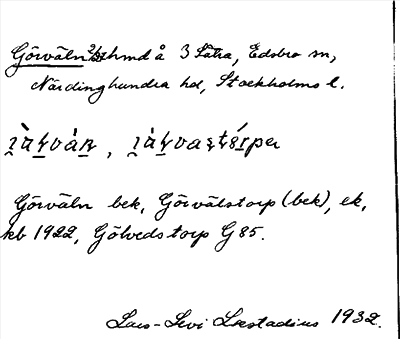 Görväln hmd å 3 Sätra, Edsbro sn,
Närdinghundra hd, Stockholms l.
Görväln bek, Görvälstorp (bek), ek,
kb 1922, Gölvedstorp G 85.
Lars-Levi Læstadius 1932.